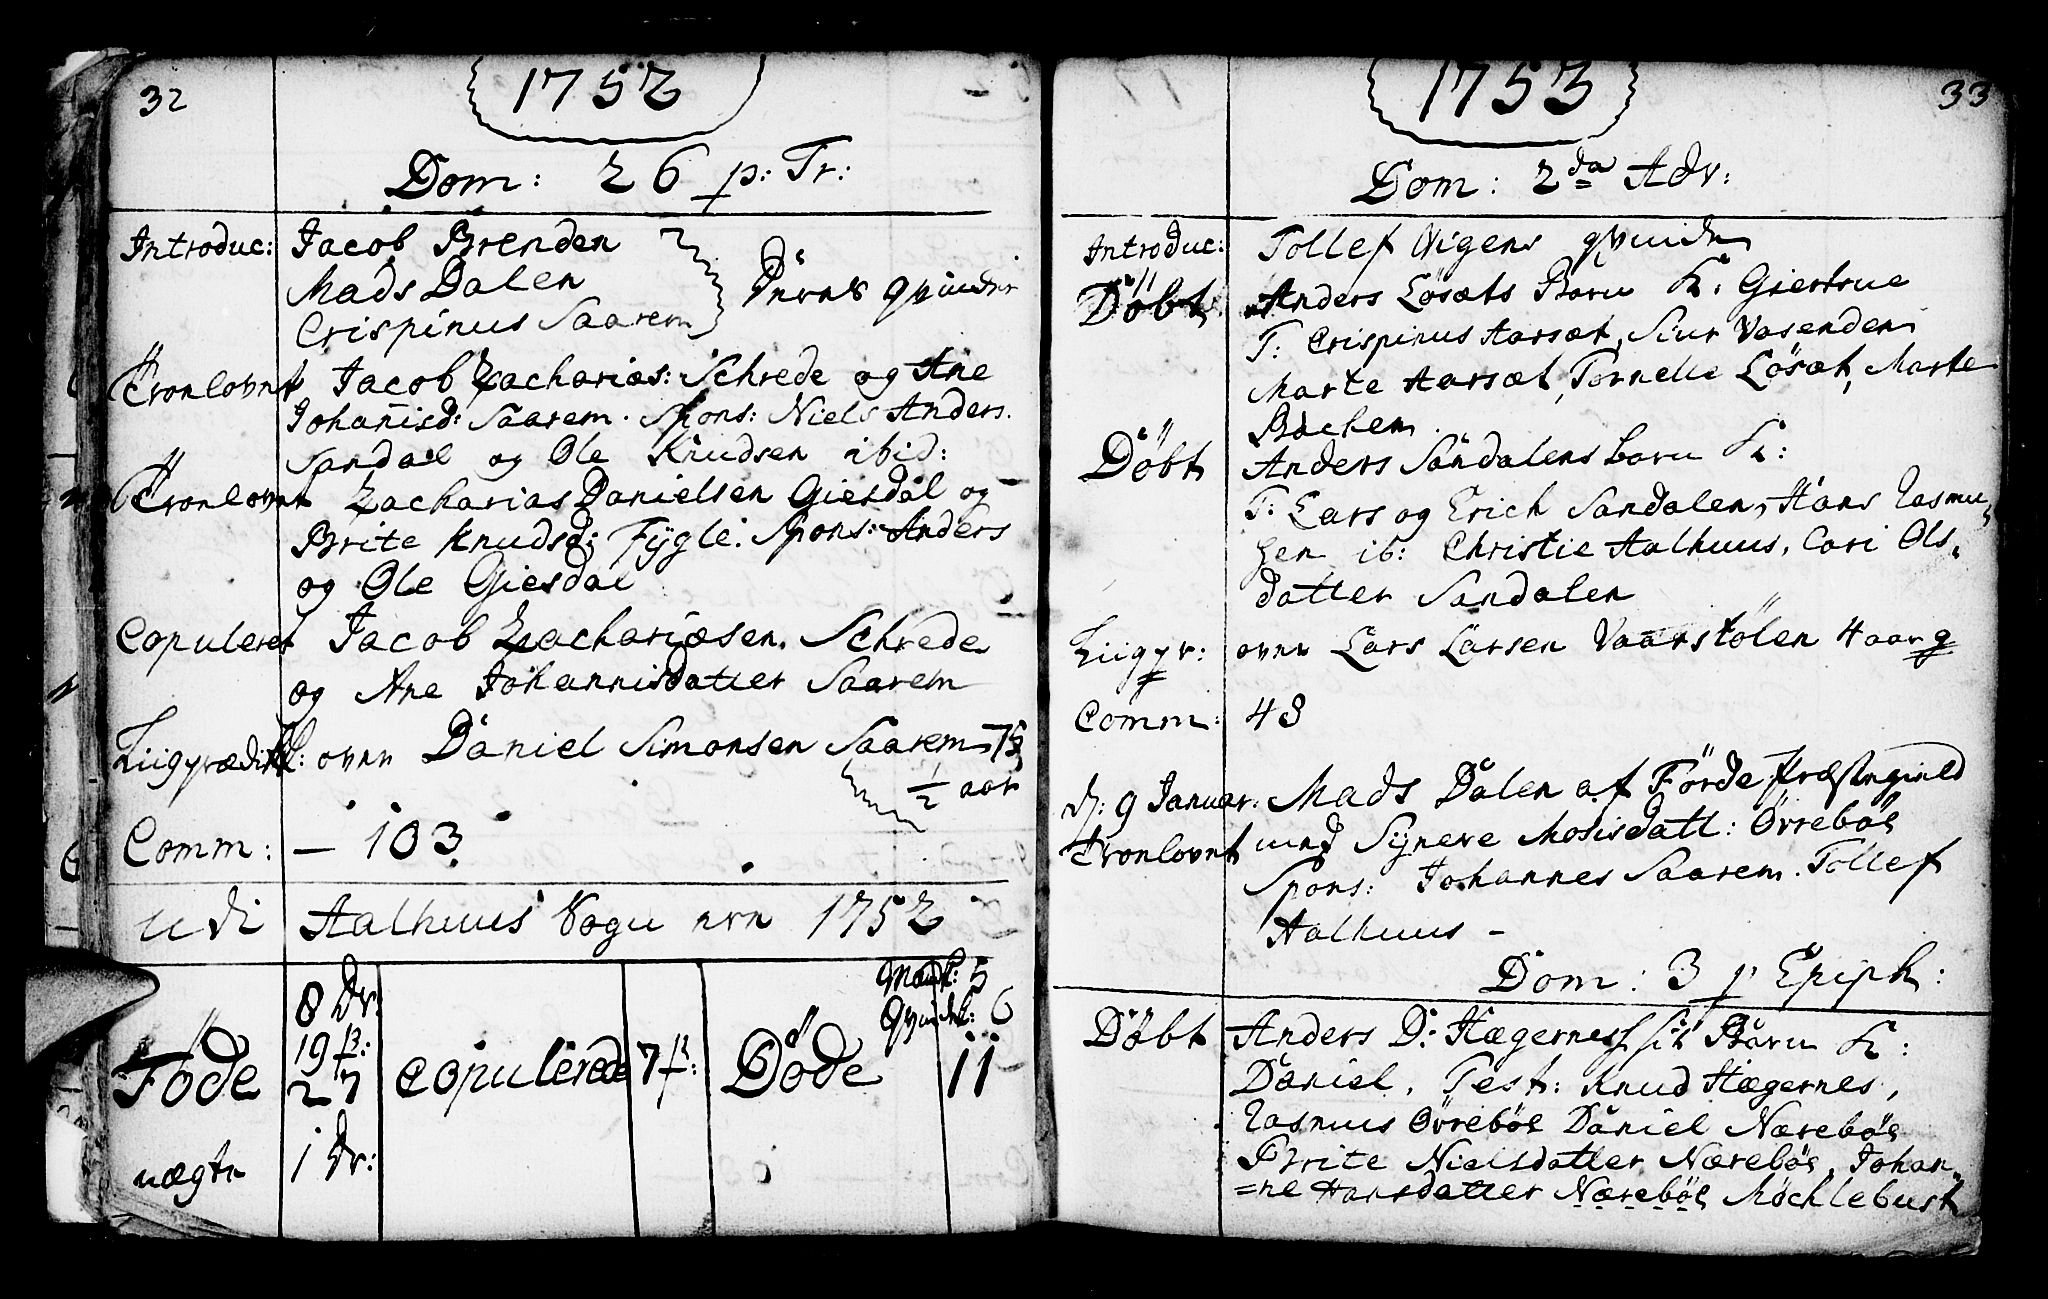 32
1752
Dom: 26 p: Tr:
Introduc: Jacob Brenden
Mads Dalen
Crispinus Saarem
Deres qvinder
Troelovet Jacob Zacharias: Schrede og Ane
Johanisd: Saarem. Spons: Niels Anders.
Sandal og Ole Knudsen ibid:
Troelovet Zacharias Danielsen Giesdal og
Brite Knudsd: Fygle. Spons: Anders
og Ole Giesdal
Copuleret Jacob Zachariæsen Schrede
og Ane Johannisdatter Saarem
Liigprædik: over Daniel Simonsen Saarem 73
1/2 aar
Comm: — 103
udi Aalhuus Sogn 1752
Föde 8 Dr. 19 p: 27
copulerede 7 p:
Döde Mandk: 5 Qvindek: 6 11
uægte 1 Dr:
33
1753
Dom: 2da Adv:
Introduc: Tollef Vigens qvinde
Döbt Anders Lösæts Barn K: Giertrue
T: Crispinus Aarsæt, Siur Vasenden
Marte Aarsæt, Tornelle Lösæt, Marte
Bachen.
Döbt Anders Sandalens barn K:
T: Lars og Erich Sandalen, Hans Rasmu-
sen ib: Christie Aalhuus, Cari Ols-
datter Sandalen
Liigpr: over Lars Larsen Vaarstölen 4 aar g
Comm: 48
d: 9 Januar: Mads Dalen af Förde Præstegield
Troelovet med Synneve Mosisdatt: Övrebös
Spons: Johannes Saarem. Tollef
Aalhuus -
Dom: 3 p Epiph:
Döbt Anders D: Hægernes sit Barn K:
Daniel, Test: Knud Hægernes,
Rasmus Övreböe Daniel Næreböe
Brite Nielsdatter Næreböe, Johan-
=ne Hansdatter Næreböe Möchlebust